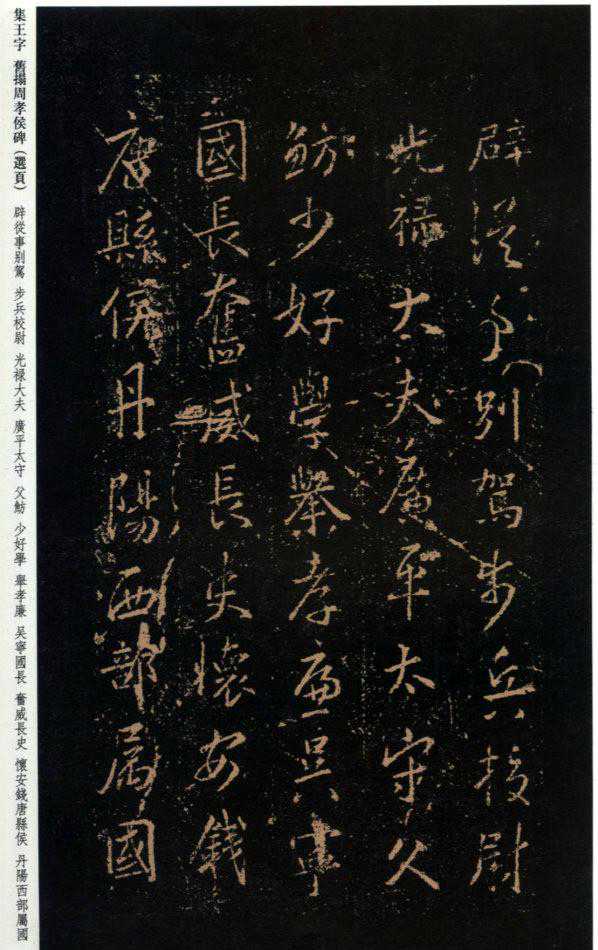 辟從事別駕步兵校尉
光祿大夫廣平太守父
魴少好學舉孝廉吳寧
國長奮威長史懷安錢
唐縣侯丹陽西部屬國
集王字 舊搨周孝侯碑（選頁） 辟從事別駕 步兵校尉 光禄大夫 廣平太守 父魴 少好學 舉孝廉 吴寧國長 奮威長史 懷安錢唐縣侯 丹陽西部屬國